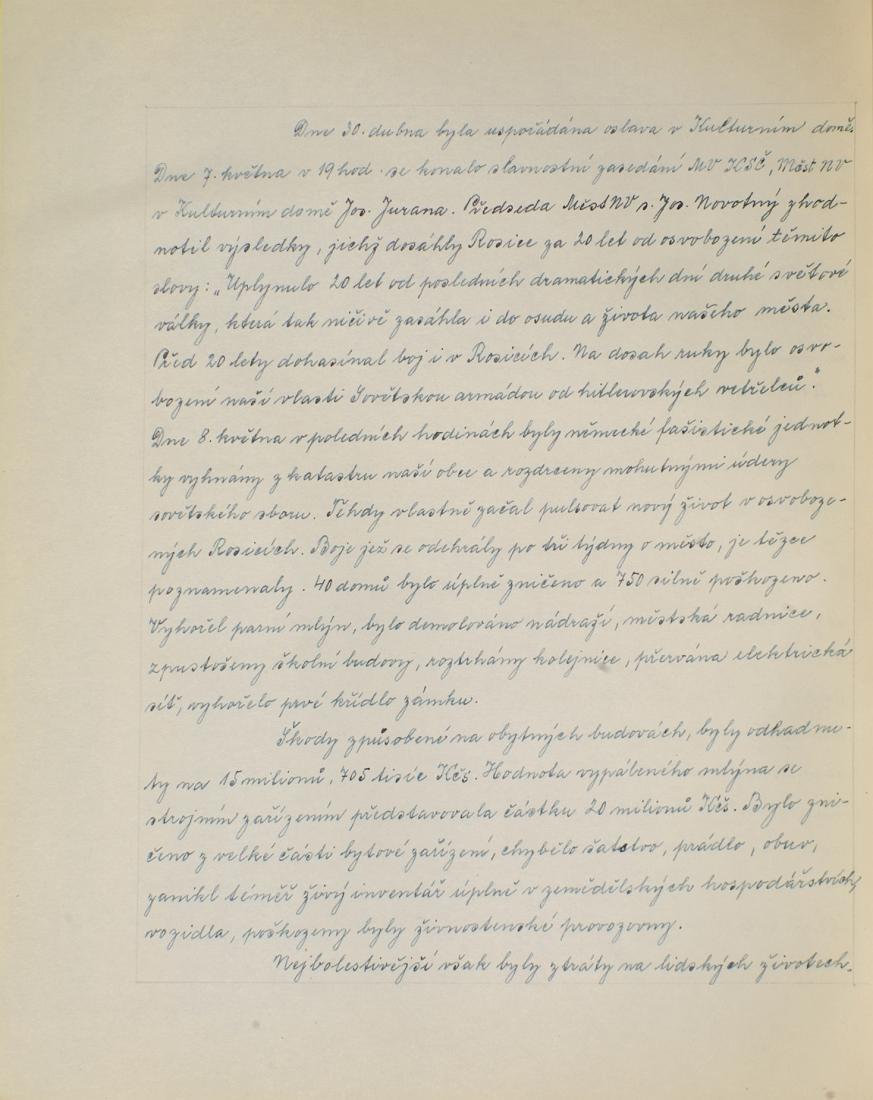 Dne 30. dubna byla uspořádána oslava v Kulturním domě.
Dne 7. května v 19 hod. se konalo slavnostní zasedání MV KSČ, Měst NV
v Kulturním domě Jos. Jurana. Předseda MěstNV s. Jos. Novotný zhod-
notil výsledky, jichž dosáhly Rosice za 20 let od osvobození těmito
slovy: „Uplynulo 20 let od posledních dramatických dní druhé světové
války, která tak ničivě zasáhla i do osudu a života našeho města.
Před 20 lety dohasínal boj i v Rosicích. Na dosah ruky bylo osvo-
bození naší vlasti Sovětskou armádou od hitlerovských vetřelců."
Dne 8. května v poledních hodinách byly německé fašistické jednot-
ky vyhnány z katastru naší obce a rozdrceny mohutnými údery
sovětského sboru. Tehdy vlastně začal pulsovat nový život v osvoboze-
ných Rosicích. Boje jež se odehrály po tři týdny o město, je těžce
poznamenaly. 40 domů bylo úplně zničeno a 750 silně poškozeno.
Vyhořel parní mlýn, bylo demolováno nádraží, městská radnice,
zpustošeny školní budovy, roztrhány kolejnice, přervána elektrická
síť, vyhořelo prvé křídlo zámku.
Škody způsobené na obytných budovách, byly odhadnu-
ty na 15 milionů, 705 tisíc Kčs. Hodnota vypáleného mlýna se
strojním zařízením představovala částku 20 milionů Kčs. Bylo zni-
čeno z velké části bytové zařízení, chybělo šatstvo, prádlo, obuv,
zanikl téměř živý inventář úplně v zemědělských hospodářstvích,
vozidla, poškozeny byly živnostenské provozovny.
Nejbolestivější však byly ztráty na lidských životech.